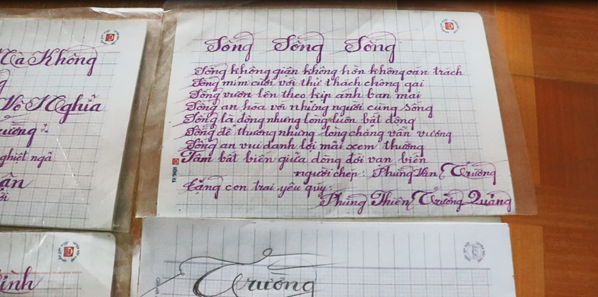 Sống Sống Sống
Sống không giận không hờn không oán trách
Sống mỉm cười với thử thách chông gai
Sống vươn lên theo kịp ánh ban mai
Sống an hòa với những người cùng sống
Sống là động nhưng lòng luôn bất động
Sống để thương nhưng lòng chẳng vấn vương
Sống an vui danh lợi mãi xem thường
Tâm bất biến giữa dòng đời vạn biến
người chép: Phùng Văn Trường
tặng con trai yêu quý:
Phùng Thiên Trường Quảng
Mà Không
Vô Nghĩa
rường:
ghiệt ngã
ình
Trường